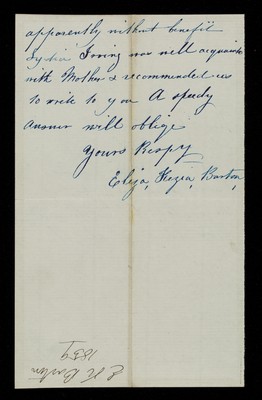 apparently without benefit
Lydia Irving was well acquainted
with Mother & recommended us
to write to you A speedy
Answer will oblige
Yours Respy
Eliza, Kezia, Barton,
E K Barton
1859